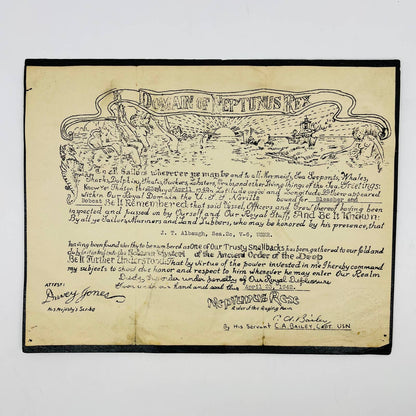 DOMAIN OF NEPTUNUS REX
To all Sailors wherever ye may be and to all Mermaids, Sea Serpents, Whales,
Sharks, Dolphins, Skates, Suckers, Lobsters, Crabs and other living things of the Sea, Greetings:
Know Ye that on this day of April 1942 Latitude 00000 and Longitude there appeared
within Our Royal Domain the U.S.S. Neville bound for
Be It Remembered that said Vessel, Officers and Crew thereof having been
inspected and passed on by Ourself and Our Royal Staff, And Be It Known:
By all ye Sailors, Mariners and Land Lubbers, who may be honored by his presence, that
J. T. Albaugh, Sea.2c, V-6, USNR.
having been found worthy to be numbered as One of Our Trusty Shellbacks has been gathered to our fold and
duly initiated into the Solemn Mysteries of the Ancient Order of the Deep
Be It Further Understood: That by virtue of the power invested in me I hereby command
my subjects to show due honor and respect to him wherever he may enter Our Realm
Disobey this order under penalty of Our Royal Displeasure
Given under our hand and seal this April 25, 1942.
ATTEST:
Davey Jones
His Majesty's Scribe
Neptunus Rex
Ruler of the Raging Main
C. A. Bailey
By His Servant C. A. BAILEY, CAPT. USN